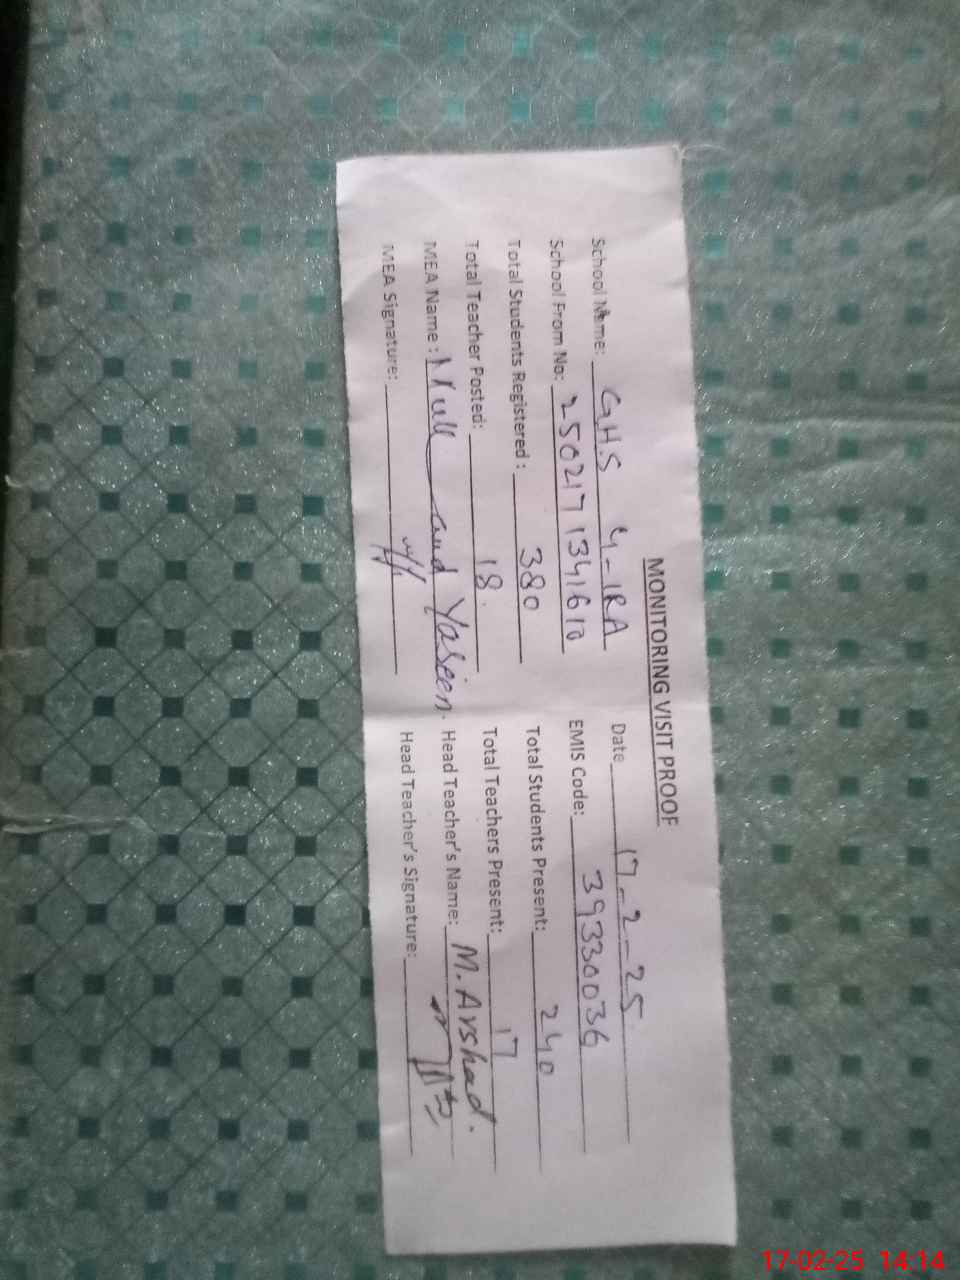 MONITORING VISIT PROOF
School Name: G.H.S 4-1RA Date 17-2-25
School From No: 250217 1341610 EMIS Code: 39330036
Total Students Registered : 380 Total Students Present: 240
Total Teacher Posted: 18 Total Teachers Present: 17
MEA Name : and Yaseen. Head Teacher's Name: M. Arshad.
MEA Signature: Head Teacher's Signature:
17-02-25 14:14